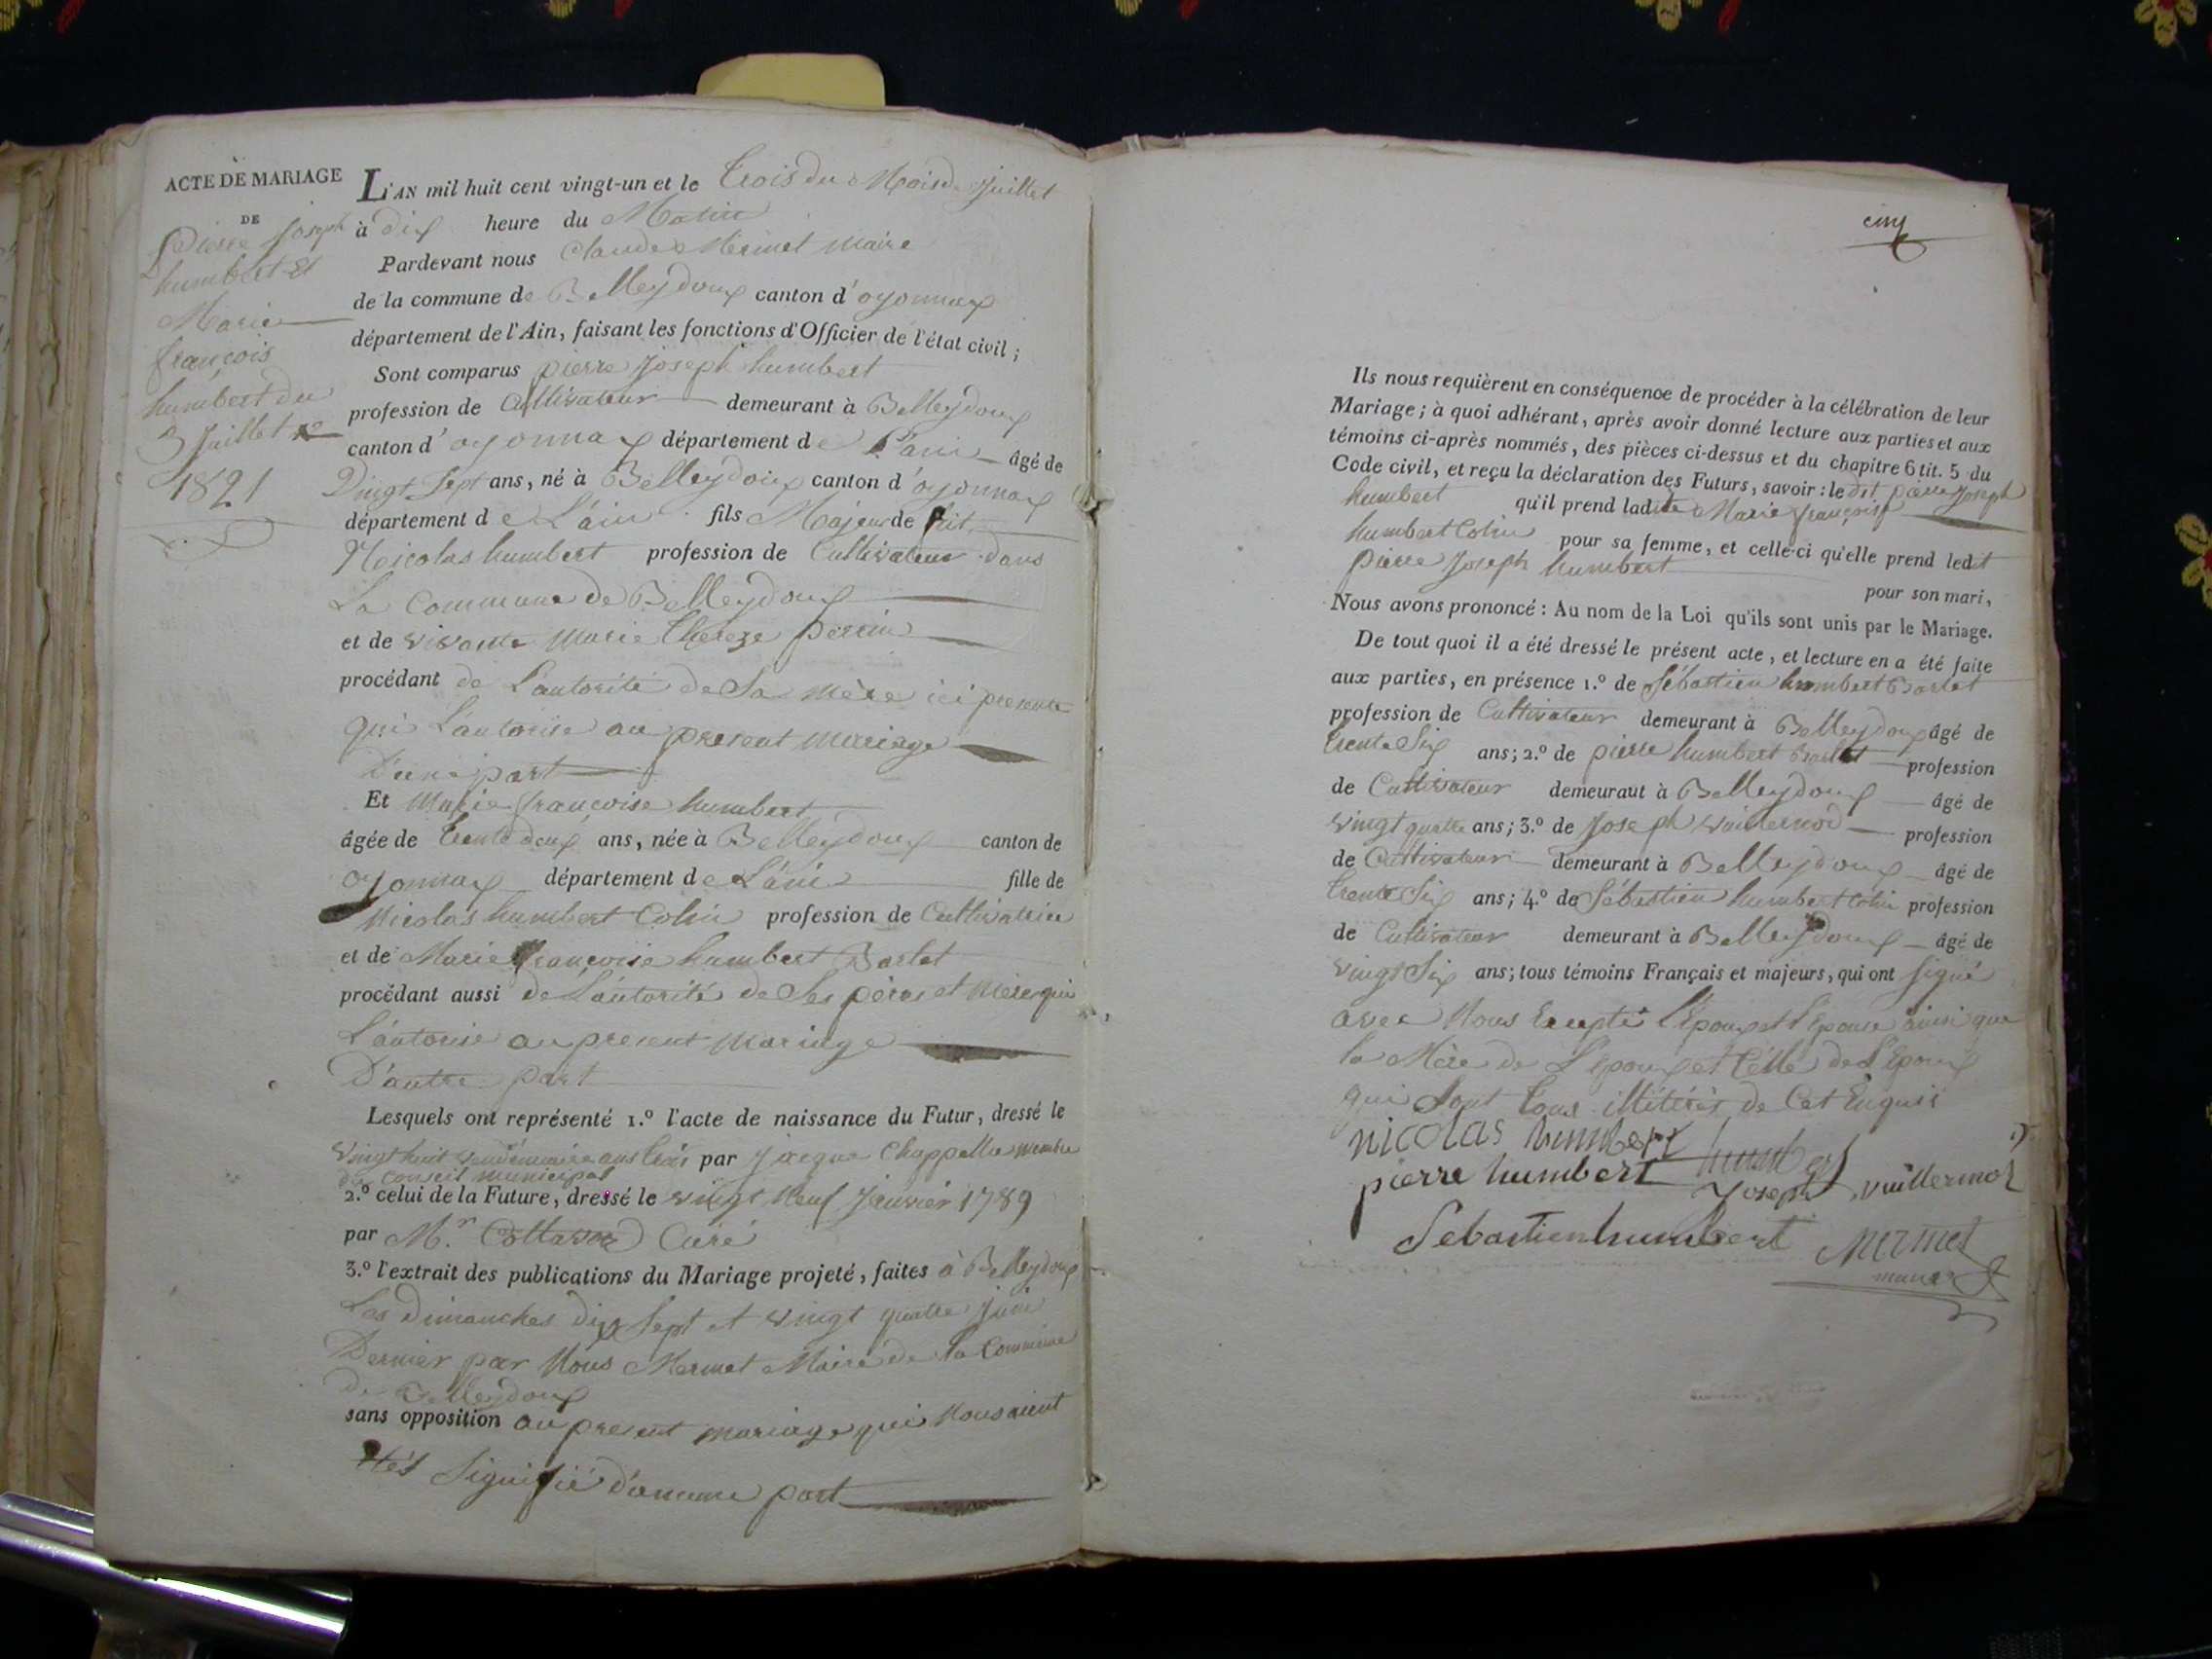 ACTE DE MARIAGE
DE
Pierre Joseph
humbert Et
Marie
françois
humbert du
3 Juillet
1821
L'AN mil huit cent vingt-un et le trois du Mois de Juillet
à dix heure du Matin
Pardevant nous Claude Mermet Maire
de la commune de Belleydoux canton d'oyonnax
département de l'Ain, faisant les fonctions d'Officier de l'état civil;
Sont comparus pierre Joseph humbert
profession de Cultivateur demeurant à Belleydoux
canton d'oyonnax département de L'ain âgé de
Vingt Sept ans, né à Belleydoux canton d'oyonnax
département de L'ain fils Majeur de fut
Nicolas humbert profession de Cultivateur dans
La Commune de Belleydoux
et de vivante Marie Thereze perrin
procédant de L'autorité de Sa Mère ici presente
qui L'autorise au present Mariage
D'une part
Et Marie françoise humbert
âgée de trente deux ans, née à Belleydoux canton de
oyonnax département de L'ain fille de
Nicolas humbert Colin profession de Cultivatrice
et de Marie françoise humbert Barlet
procédant aussi de L'autorité de Ses pères et Mère qui
L'autorise au present Mariage
D'autre part
Lesquels ont représenté 1.º l'acte de naissance du Futur, dressé le
vingt huit vendemiaire ans trois par Jacque Chappellu membre
du Conseil municipal
2.º celui de la Future, dressé le vingt Neuf Janvier 1789
par M.r Curé
3.º l'extrait des publications du Mariage projeté, faites à Belleydoux
Les Dimanches dix Sept et vingt quatre Juin
Dernier par Nous Mermet Maire de la Commune
de Belleydoux
sans opposition au present mariage qui Nous aient
étés Signifié d'aucune part
cinq
Ils nous requièrent en conséquence de procéder à la célébration de leur
Mariage; à quoi adhérant, après avoir donné lecture aux parties et aux
témoins ci-après nommés, des pièces ci-dessus et du chapitre 6 tit. 5 du
Code civil, et reçu la déclaration des Futurs, savoir: le dit pierre Joseph
humbert qu'il prend ladite Marie françoise
humbert Colin pour sa femme, et celle-ci qu'elle prend ledit
Pierre Joseph humbert
pour son mari,
Nous avons prononcé: Au nom de la Loi qu'ils sont unis par le Mariage.
De tout quoi il a été dressé le présent acte, et lecture en a été faite
aux parties, en présence 1.º de Sébastien humbert Barlet
profession de Cultivateur demeurant à Belleydoux âgé de
trente Six ans; 2.º de pierre humbert Barlet profession
de Cultivateur demeuraut à Belleydoux âgé de
vingt quatre ans; 3.º de Joseph vuillermoz profession
de Cultivateur demeurant à Belleydoux âgé de
trente Six ans; 4.º de Sébastien humbert Colin profession
de Cultivateur demeurant à Belleydoux âgé de
vingt Six ans; tous témoins Français et majeurs, qui ont signé
avec Nous Excepté L'Epoux et l'Epouse ainsi que
la Mère de L'Epoux et Cêlle de L'Epoux
qui Sont tous illitérés de Cet Enquis
nicolas humbert humbert
pierre humbert Joseph vuillermoz
Sebastien humbert Mermet
maire